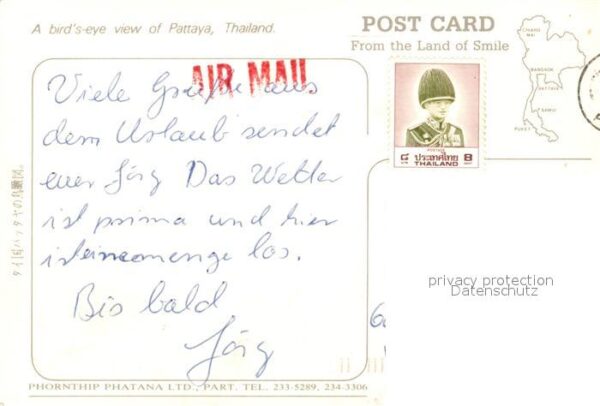 A bird's-eye view of Pattaya, Thailand.
POST CARD
From the Land of Smile
AIR MAIL
Viele Grüße aus
dem Urlaub sendet
euer Jörg Das Wetter
ist prima und hier
ist eine menge los.
Bis bald
Jörg
CHIANG MAI
BANGKOK
PATTAYA
SAMUI
PUKET
POSTAGE
๘ ประเทศไทย 8
THAILAND
privacy protection
Datenschutz
PHORNTHIP PHATANA LTD., PART. TEL. 233-5289, 234-3306